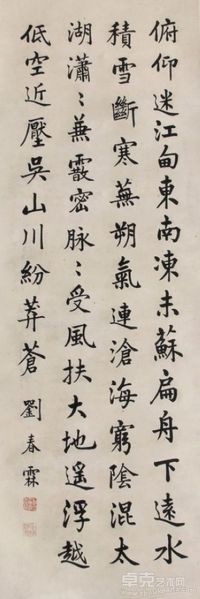 俯仰迷江甸東南凍未蘇扁舟下遠水
積雪斷寒蕪朔氣連滄海窮陰混太
湖瀟〻兼霰密脉〻受風扶大地遥浮越
低空近壓吳山川紛莽蒼
劉春霖
卓克艺术网